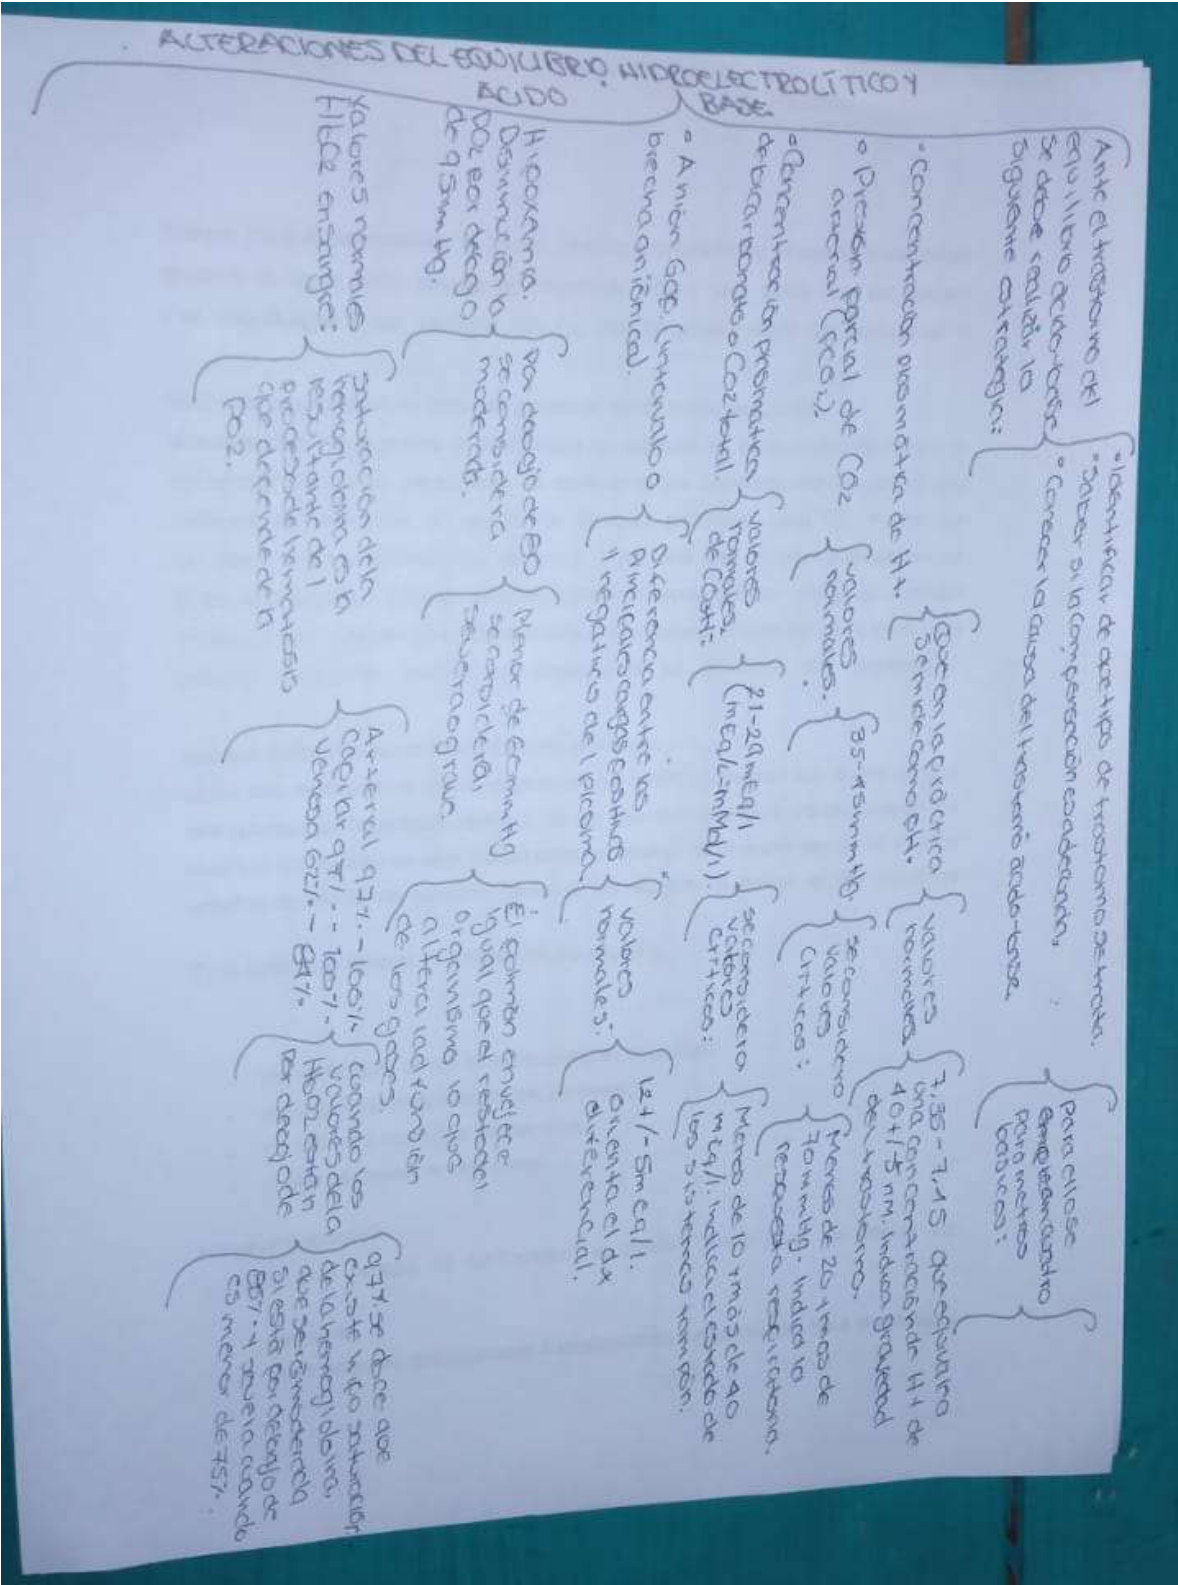 ALTERACIONES DEL EQUILIBRIO HIDROELECTROLÍTICO Y
ÁCIDO BASE
Ante el trastorno del
equilibrio acido-base
se debe realizar la
siguiente estrategia:
° Identificar de que tipo de trastorno se trata.
° Saber si la compensación es adecuada,
° Conocer la causa del trastorno ácido-base.
Para ello se
emplean cuatro
parametros
basicos:
° Concentración plasmática de H+.
Que en la práctica
se mide como pH.
valores
normales
7,35 - 7,45 que equivale a
una concentración de H+ de
40 +/- 5 nM. Indica gravedad
del trastorno.
° Presión parcial de CO2
arterial (pCO2).
valores
normales.
35-45mmHg.
se considera
valores
criticos:
Menos de 20 y mas de
70 mmHg. Indica la
respuesta respiratoria.
° Concentración plasmática
de bicarbonato o CO2 total
valores
normales.
de CO3H-:
21-29 mEq/l
(mEq/L=mMol/l).
se considera
valores
criticos:
Menos de 10 y más de 40
mEq/l. Indica el estado de
los sistemas tampón.
° Anión Gap. (intervalo o
brecha aniónica).
Diferencia entre las
principales cargas positivas
y negativas del plasma.
valores
normales:
12 +/- 5mEq/l.
Orienta el dx
diferencial.
Hipoxemia.
Disminución la
PO2 por debajo
de 95mmHg.
Por debajo de 80
se considera
moderada.
Menor de 60mmHg
se considera
severa o grave
El pulmón envejece
igual que el resto del
organismo lo que
altera la difusión
de los gases.
Valores normales
HbO2 en sangre:
saturación de la
hemoglobina es la
resultante del
proceso de hematosis
que depende de la
PO2.
Arterial 97%. - 100%.
Capilar 97%. - 100%.
Venosa 62%. - 84%.
cuando los
valores de la
HbO2 están
por debajo de
97%. se dice que
existe hipo saturación
de la hemoglobina,
que será moderada
si está por debajo de
85%. y severa cuando
es menor de 75%.